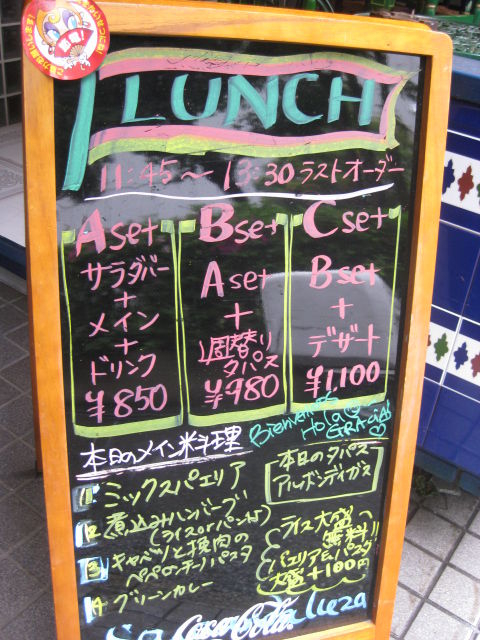 LUNCH
11:45～13:30 ラストオーダー
A set
サラダバー
+
メイン
+
ドリンク
¥850
B set
A set
+
週替り
タパス
¥980
C set
B set
+
デザート
¥1,100
Bienvenidos
Hola
GRACIAS
本日のメイン料理
1 ミックスパエリア
2 煮込みハンバーグ
(ライスorパン付)
3 キャベツと挽肉の
ペペロンチーノパスタ
4 グリーンカレー
本日のタパス
アルボンディガス
ライス大盛へ
無料!!
パエリア&パスタ
大盛+100円
Coca-Cola